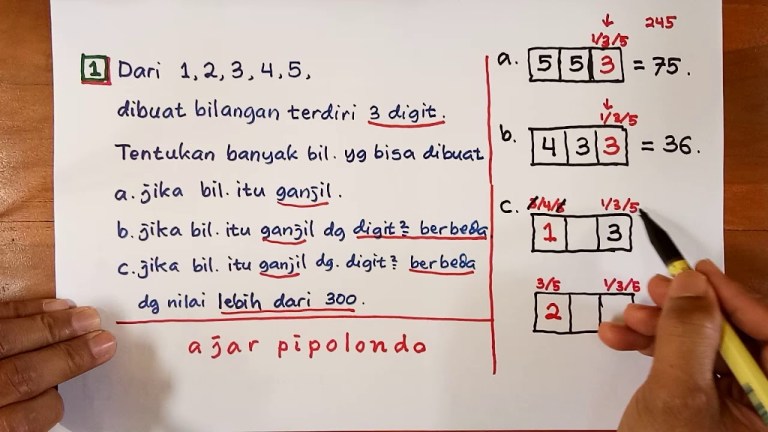 1 Dari 1, 2, 3, 4, 5,
dibuat bilangan terdiri 3 digit.
Tentukan banyak bil. yg bisa dibuat
a. jika bil. itu ganjil.
b. jika bil. itu ganjil dg digit² berbeda
c. jika bil. itu ganjil dg. digit² berbeda
dg nilai lebih dari 300.
ajar pipolondo
↓ 245
1/3/5
a. 5 5 3 = 75.
↓
1/3/5
b. 4 3 3 = 36.
c. 3/4/5 1/3/5
1 3
3/5 1/3/5
2